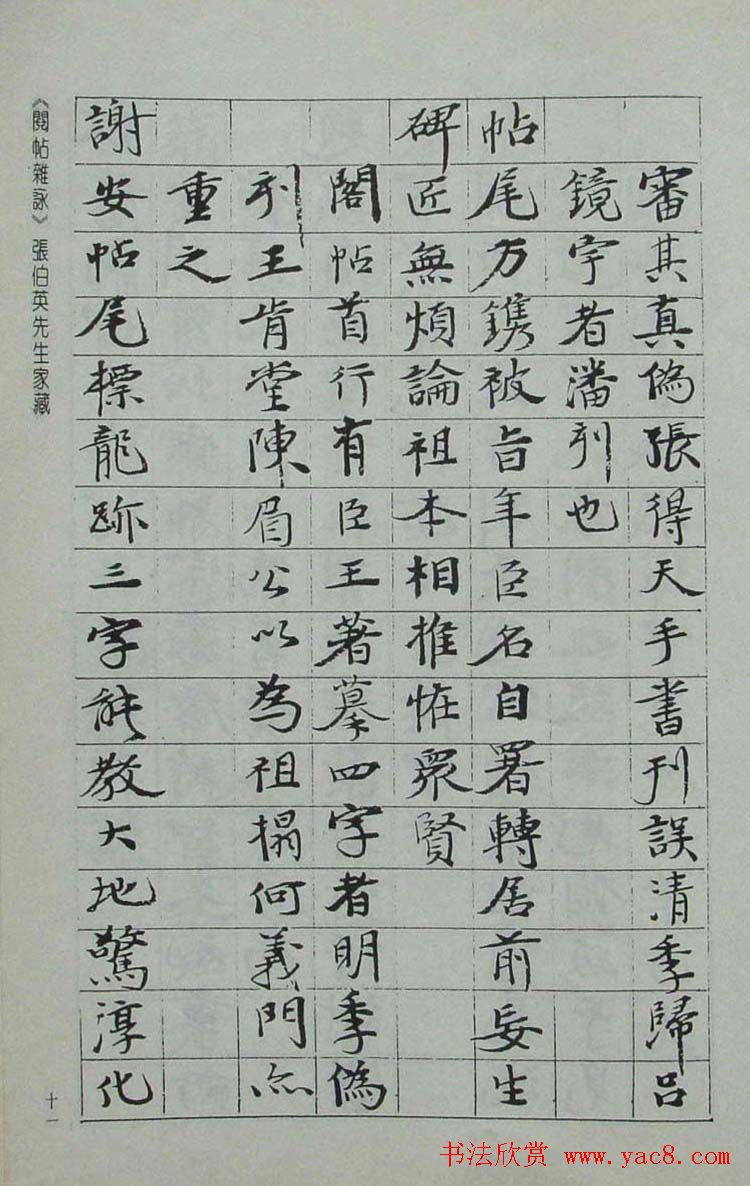 審其真偽張得天手書刊誤清季歸呂
鏡宇者潘刻也
帖尾方鐫被旨年臣名自署轉居前妄生
碑匠無煩論祖本相推恠衆賢
閣帖首行有臣王著摹四字者明季偽
刻王肯堂陳眉公以為祖搨何義門亦
重之
謝安帖尾標龍跡三字能教大地驚淳化
《閱帖雜詠》張伯英先生家藏
十一
书法欣赏 www.yac8.com